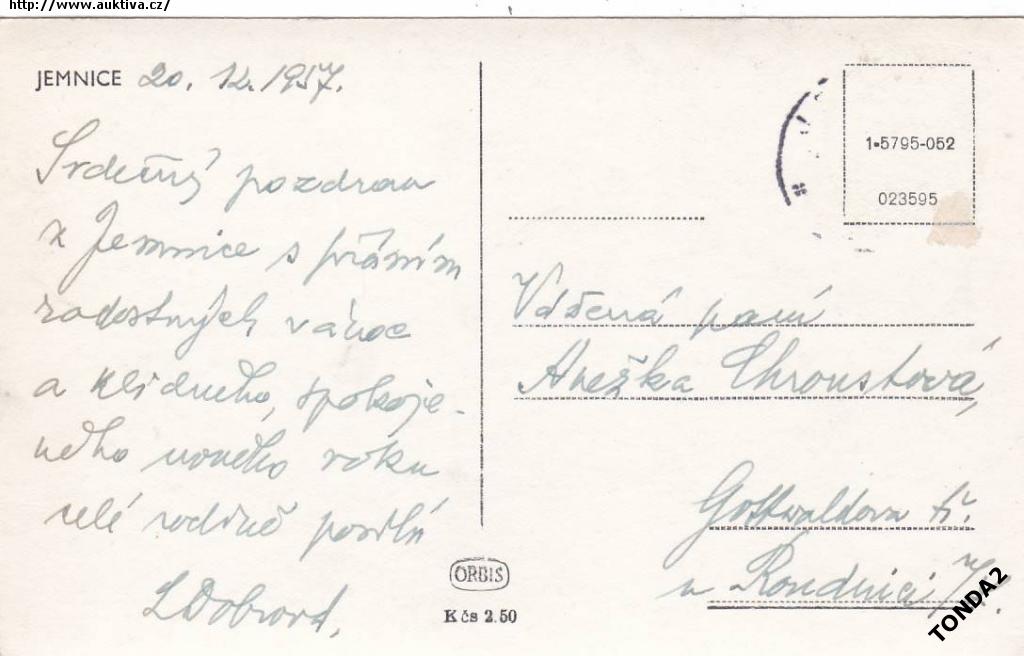 http://www.auktiva.cz/
JEMNICE 20. 12. 1957.
Srdečný pozdrav
z Jemnice s přáním
radostných vánoc
a klidného, spokoje-
ného nového roku
celé rodině posílá
LDobrová.
ORBIS
Kčs 2.50
1-5795-052
023595
Vážená paní
Anežka Chroustová,
Gottwaldova tř.
Roudnici
TONDA2